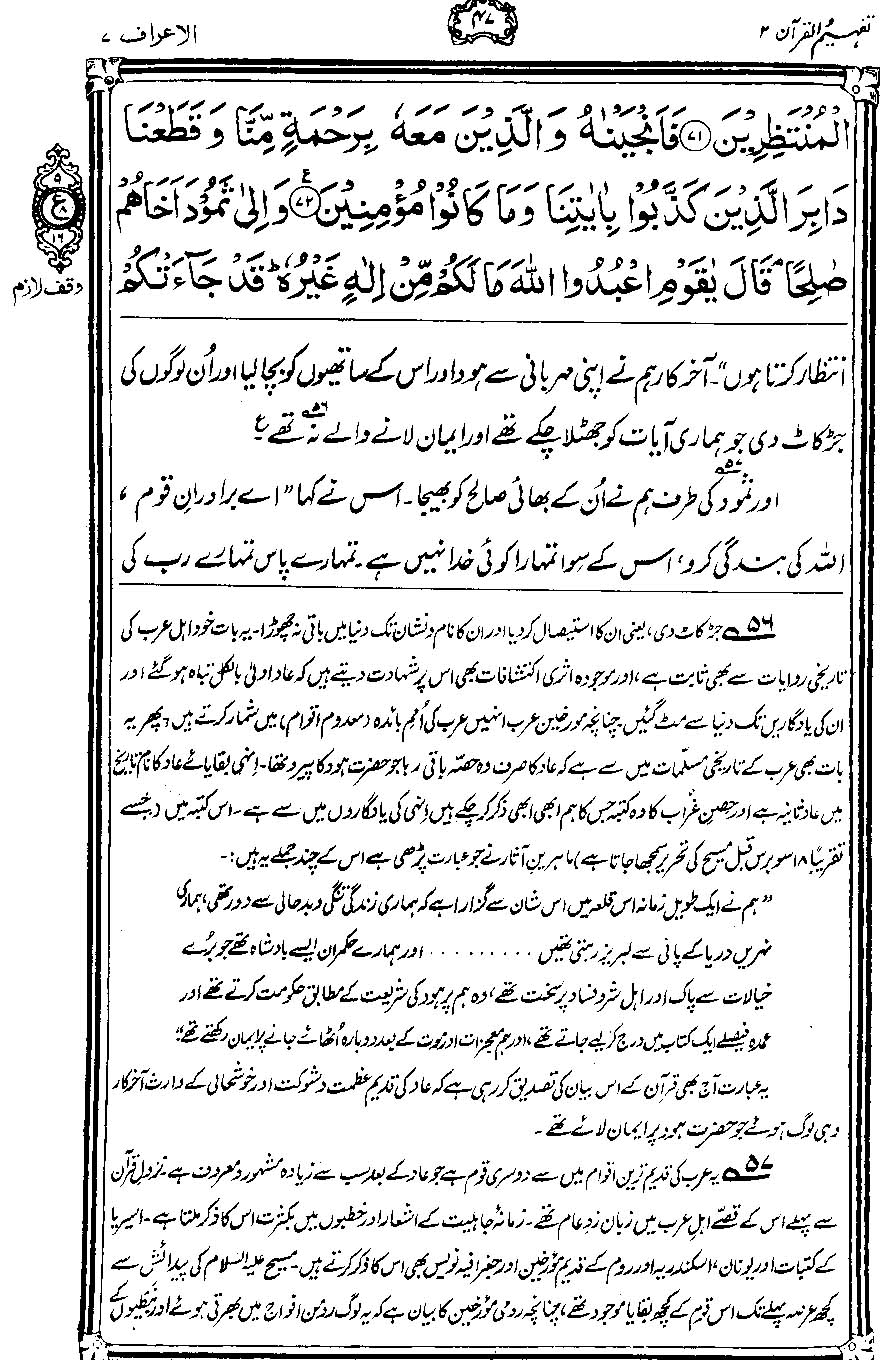 تفہیم القرآن ۲
۴۷
الاعراف ۷
الْمُنْتَظِرِيْنَ ﴿۷۱﴾ فَاَنْجَيْنٰهُ وَ الَّذِيْنَ مَعَهٗ بِرَحْمَةٍ مِّنَّا وَ قَطَعْنَا
دَابِرَ الَّذِيْنَ كَذَّبُوْا بِاٰيٰتِنَا وَ مَا كَانُوْا مُؤْمِنِيْنَ ﴿۷۲﴾ؒ وَ اِلٰى ثَمُوْدَ اَخَاهُمْ
صٰلِحًا ۘ قَالَ يٰقَوْمِ اعْبُدُوا اللّٰهَ مَا لَكُمْ مِّنْ اِلٰهٍ غَيْرُهٗ ؕ قَدْ جَآءَتْكُمْ
۹
ع ۸
۱۶
وقف لازم
انتظار کرتا ہوں“۔ آخر کار ہم نے اپنی مہربانی سے ہود اور اس کے ساتھیوں کو بچا لیا اور اُن لوگوں کی
جڑ کاٹ دی جو ہماری آیات کو جھٹلا چکے تھے اور ایمان لانے والے نہ تھے ۵۶ ع
اور ثمود ۵۷ کی طرف ہم نے اُن کے بھائی صالح کو بھیجا۔ اس نے کہا ”اے برادرانِ قوم،
اللہ کی بندگی کرو، اس کے سوا تمہارا کوئی خدا نہیں ہے۔ تمہارے پاس تمہارے رب کی
۵۶ جڑ کاٹ دی، یعنی ان کا استیصال کر دیا اور ان کا نام و نشان تک دنیا میں باقی نہ چھوڑا۔ یہ بات خود اہل عرب کی
تاریخی روایات سے بھی ثابت ہے، اور موجودہ اثری اکتشافات بھی اس پر شہادت دیتے ہیں کہ عاد اولیٰ بالکل تباہ ہو گئے اور
ان کی یادگاریں تک دنیا سے مٹ گئیں۔ چنانچہ مورخین عرب انہیں عرب کی اُمَم بائدہ (معدوم اقوام) میں شمار کرتے ہیں۔ پھر یہ
بات بھی عرب کے تاریخی مسلّمات میں سے ہے کہ عاد کا صرف وہ حصّہ باقی رہا جو حضرت ہود کا پیرو تھا۔ اِنہی بقایائے عاد کا نام تاریخ
میں عاد ثانیہ ہے اور حِصنِ غُراب کا وہ کتبہ جس کا ہم ابھی ابھی ذکر کر چکے ہیں اِنہی کی یادگاروں میں سے ہے۔ اس کتبہ میں (جسے
تقریباً ۱۸ سو برس قبل مسیح کی تحریر سمجھا جاتا ہے) ماہرین آثار نے جو عبارت پڑھی ہے اس کے چند جملے یہ ہیں:۔
”ہم نے ایک طویل زمانہ اس قلعہ میں اس شان سے گزارا ہے کہ ہماری زندگی تنگی و بدحالی سے دور تھی، ہماری
نہریں دریا کے پانی سے لبریز رہتی تھیں ......... اور ہمارے حکمران ایسے بادشاہ تھے جو بُرے
خیالات سے پاک اور اہل شر و فساد پر سخت تھے، وہ ہم پر ہود کی شریعت کے مطابق حکومت کرتے تھے اور
عمدہ فیصلے ایک کتاب میں درج کر لیے جاتے تھے، اور ہم معجزات اور موت کے بعد دوبارہ اُٹھائے جانے پر ایمان رکھتے تھے“
یہ عبارت آج بھی قرآن کے اس بیان کی تصدیق کر رہی ہے کہ عاد کی قدیم عظمت و شوکت اور خوشحالی کے وارث آخر کار
وہی لوگ ہوئے جو حضرت ہود پر ایمان لائے تھے۔
۵۷ یہ عرب کی قدیم ترین اقوام میں سے دوسری قوم ہے جو عاد کے بعد سب سے زیادہ مشہور و معروف ہے۔ نزول قرآن
سے پہلے اس کے قصّے اہل عرب میں زباں زدِ عام تھے۔ زمانۂ جاہلیت کے اشعار اور خطبوں میں بکثرت اس کا ذکر ملتا ہے۔ اسیریا
کے کتبات اور یونان، اسکندریہ اور روم کے قدیم مؤرخین اور جغرافیہ نویس بھی اس کا ذکر کرتے ہیں۔ مسیح علیہ السلام کی پیدائش سے
کچھ عرصہ پہلے تک اس قوم کے کچھ بقایا موجود تھے، چنانچہ رومی مؤرخین کا بیان ہے کہ یہ لوگ رومن افواج میں بھرتی ہوئے اور نبطیوں کے